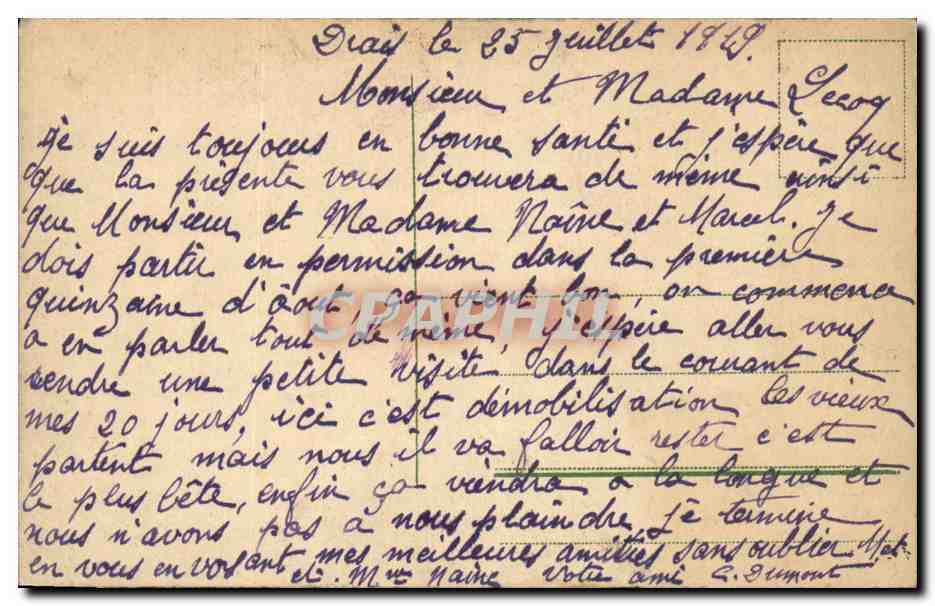 Drais le 25 juillet 1919.
Monsieur et Madame Lecoq
Je suis toujours en bonne santé et j'espère que
que la présente vous trouvera de même ainsi
que Monsieur et Madame Naîne et Marcel. Je
dois partir en permission dans la première
quinzaine d'Août, ça vient bon, on commence
a en parler tout de même, j'espère aller vous
rendre une petite visite dans le courant de
mes 20 jours, ici c'est démobilisation les vieux
partent mais nous il va falloir rester c'est
le plus bête, enfin ça viendra a la longue et
nous n'avons pas a nous plaindre, je termine
en vous envoyant mes meilleures amitiés sans oublier Mr
et Mme Naine Votre ami C. Dumont
CPAPHIL